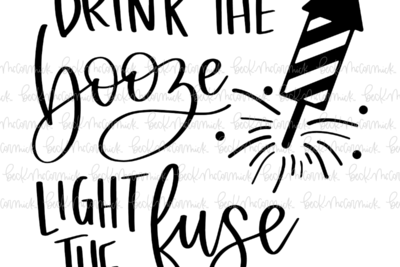 DRINK THE
booze
LIGHT
THE fuse